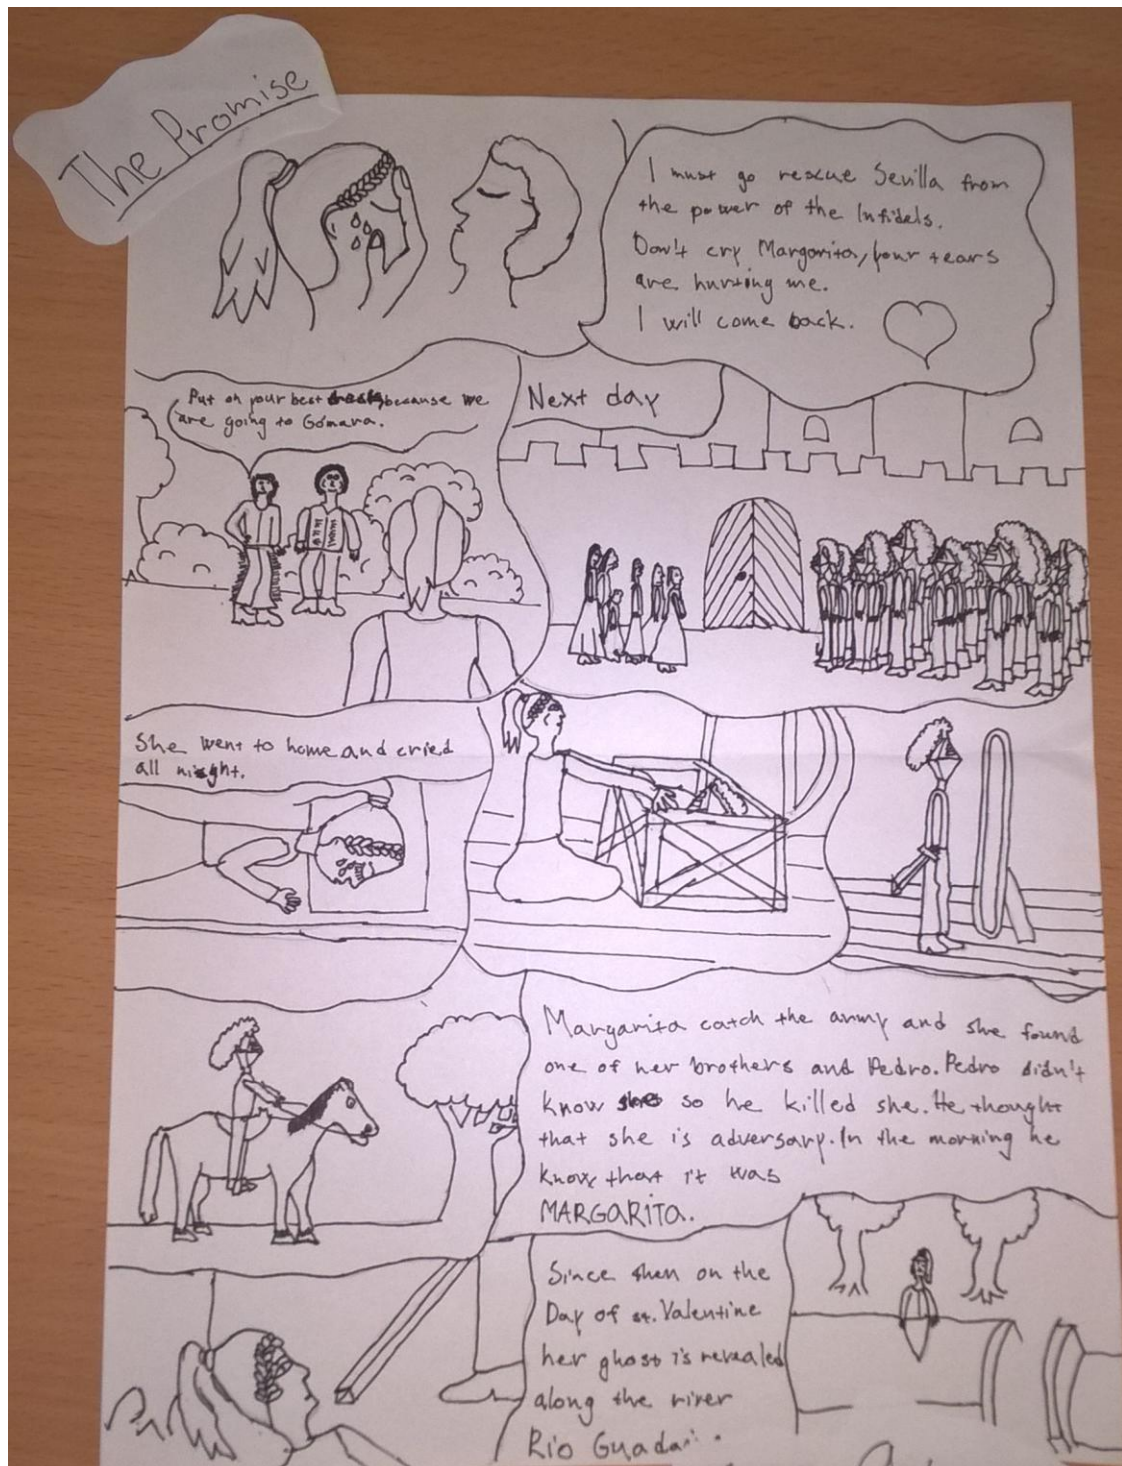 The Promise
I must go rescue Sevilla from
the power of the Infidels.
Don't cry Margarita, your tears
are hurting me.
I will come back.
Put on your best because we
are going to Gómara.
Next day
She went to home and cried
all night.
Margarita catch the army and she found
one of her brothers and Pedro. Pedro didn't
know she so he killed she. He thought
that she is adversary. In the morning he
know that it was
MARGARITA.
Since then on the
Day of st. Valentine
her ghost is revealed
along the river
Rio